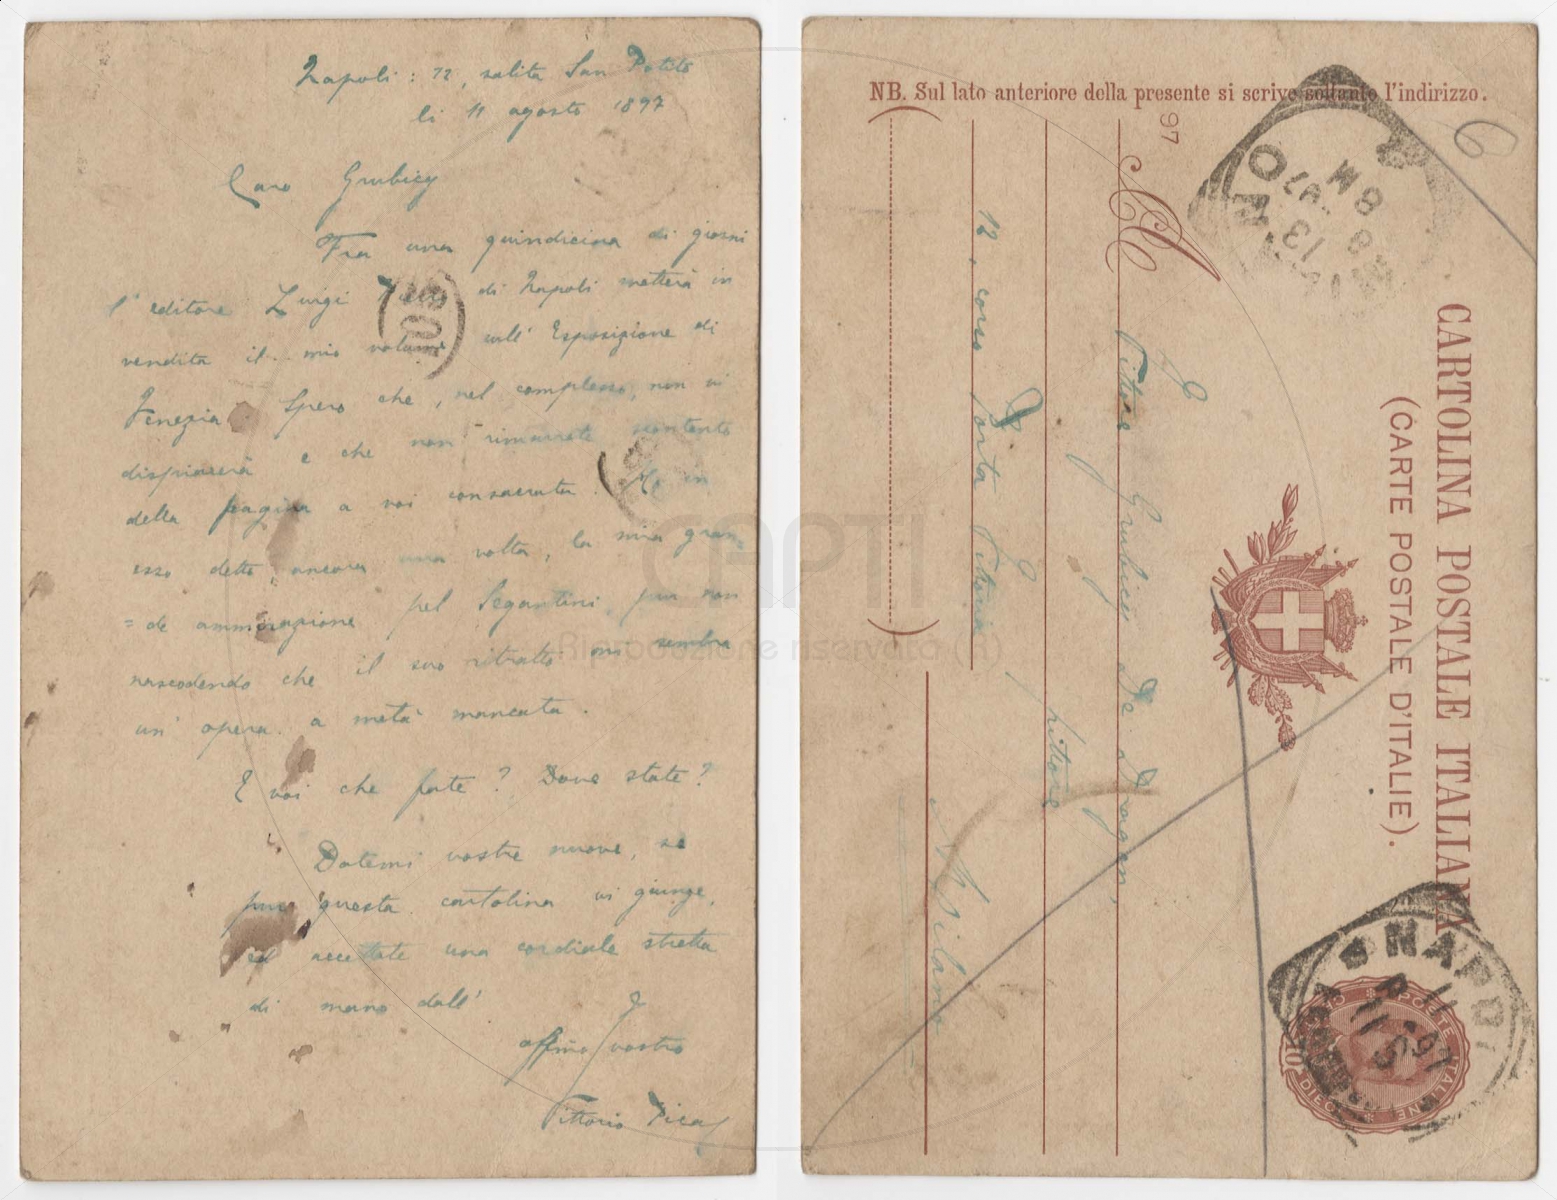 Napoli: 72, salita San Potito
li 11 agosto 1897
Caro Grubicy
Fra una quindicina di giorni
l'editore Luigi di Napoli metterà in
vendita il mio volume sull'Esposizione di
Venezia. Spero che, nel complesso, non vi
dispiacerà e che non rimarrete scontento
della pagina a voi consacrata. Ho in
esso detto ancora una volta, la mia gran
=de ammirazione pel Segantini, pur non
nascodendo che il suo ritratto mi sembra
un'opera a metà mancata.
E voi che fate? Dove state?
Datemi vostre nuove, se
pur questa cartolina vi giunge,
ed accettate una cordiale stretta
di mano dall'
affmo vostro
Vittorio Pica
NB. Sul lato anteriore della presente si scrive soltanto l'indirizzo.
CARTOLINA POSTALE ITALIANA
(CARTE POSTALE D'ITALIE).
97
A
Vittore Grubicy De Dragon,
pittore
12, corso Porta Vittoria
Milano
NAPOLI
11
8-97
POSTE ITALIANE
DIECI
10
MILANO
13
8
97
8M
108
6
CAPTI
Riproduzione riservata (R)